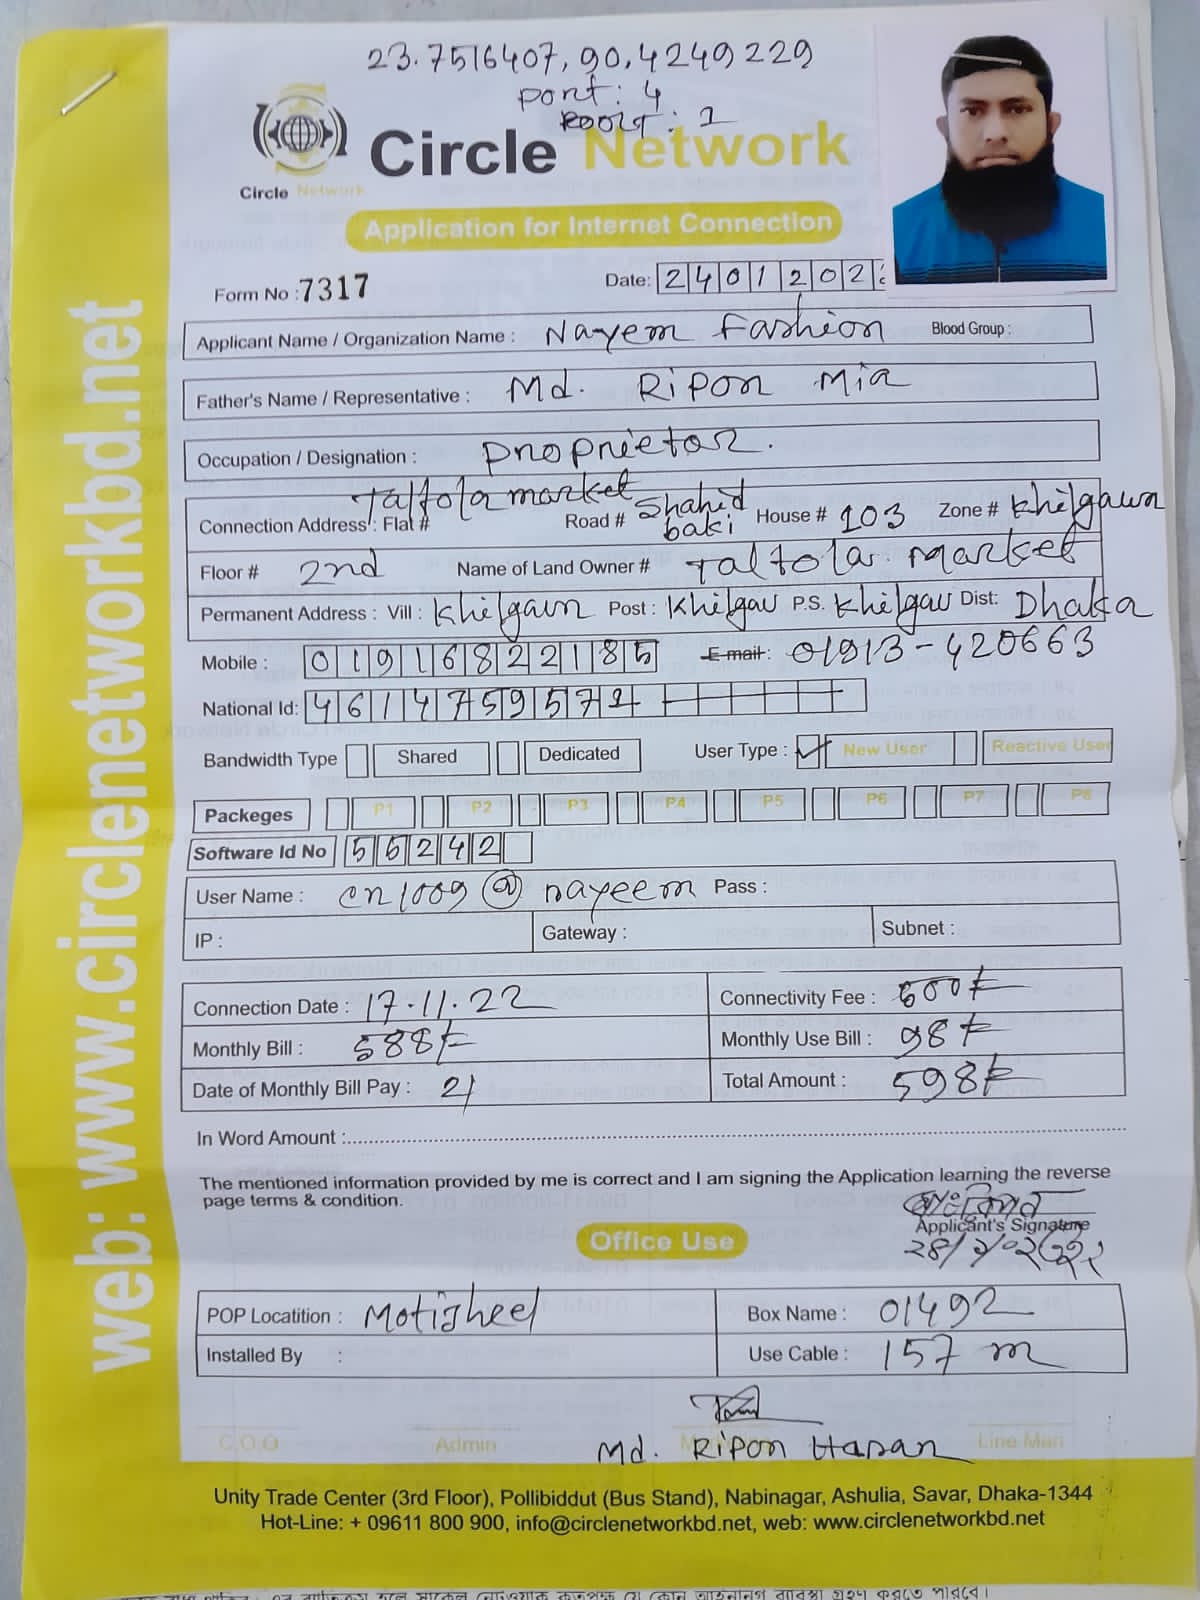 23.7516407, 90.4249229
Port: 4
Circle Network
Circle Network
Application for Internet Connection
Form No : 7317
Date: 2401202
Applicant Name / Organization Name : Nayem Fashion Blood Group :
Father's Name / Representative : Md. Ripon Mia
Occupation / Designation : Proprietor.
Connection Address : Flat # Taltola market Road # Shahid baki House # 103 Zone # Khilgawn
Floor # 2nd Name of Land Owner # Taltola market
Permanent Address : Vill : Khilgawn Post : Khilgau P.S. Khilgau Dist: Dhaka
Mobile : 01916822185 E-mail: 01913-420663
National Id: 4614759572
Bandwidth Type Shared Dedicated User Type : New User Reactive User
Packeges P1 P2 P3 P4 P5 P6 P7 P8
Software Id No 55242
User Name : cn1009@nayeem Pass :
IP : Gateway : Subnet :
Connection Date : 17.11.22 Connectivity Fee : 500/-
Monthly Bill : 588/- Monthly Use Bill : 98/-
Date of Monthly Bill Pay : 21 Total Amount : 598/-
In Word Amount :
The mentioned information provided by me is correct and I am signing the Application learning the reverse
page terms & condition.
Applicant's Signature
Office Use
POP Locatition : Motijheel Box Name : 01492
Installed By : Use Cable : 157 m
C.O.O Admin Line Man
Md. Ripon Hasan
Unity Trade Center (3rd Floor), Pollibiddut (Bus Stand), Nabinagar, Ashulia, Savar, Dhaka-1344
Hot-Line: + 09611 800 900, info@circlenetworkbd.net, web: www.circlenetworkbd.net
web: www.circlenetworkbd.net